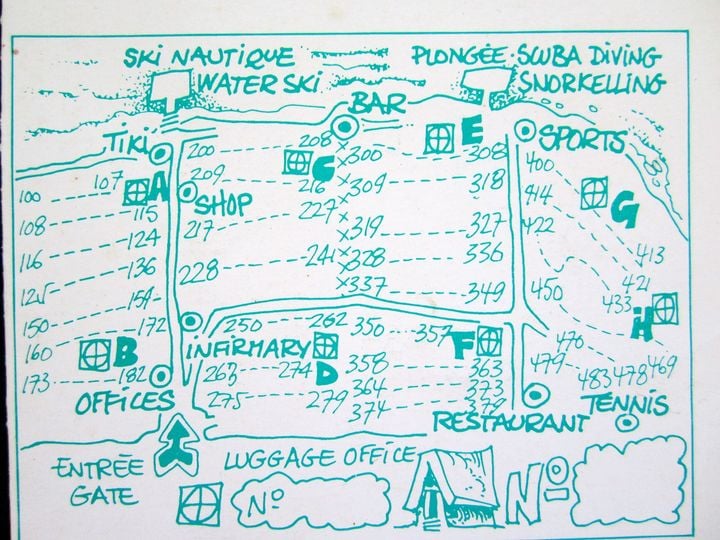 SKI NAUTIQUE
WATER SKI
PLONGÉE. SCUBA DIVING
SNORKELLING
BAR
TIKI
SPORTS
E
200 208 300 308 400
C
107 A 209 216 309 318 414 G
100
SHOP
115 227 422
108 217 319 327
124 413
116 241 328 336
136 228 421
125 337 349 450 433
154
150 172 250 262 350 357 H
160 INFIRMARY F 470
B 263 274 D 358 363 479 483 478 469
173 182 364 373
OFFICES 275 279 374 379
RESTAURANT TENNIS
ENTRÉE
GATE
LUGGAGE OFFICE
Nº
Nº